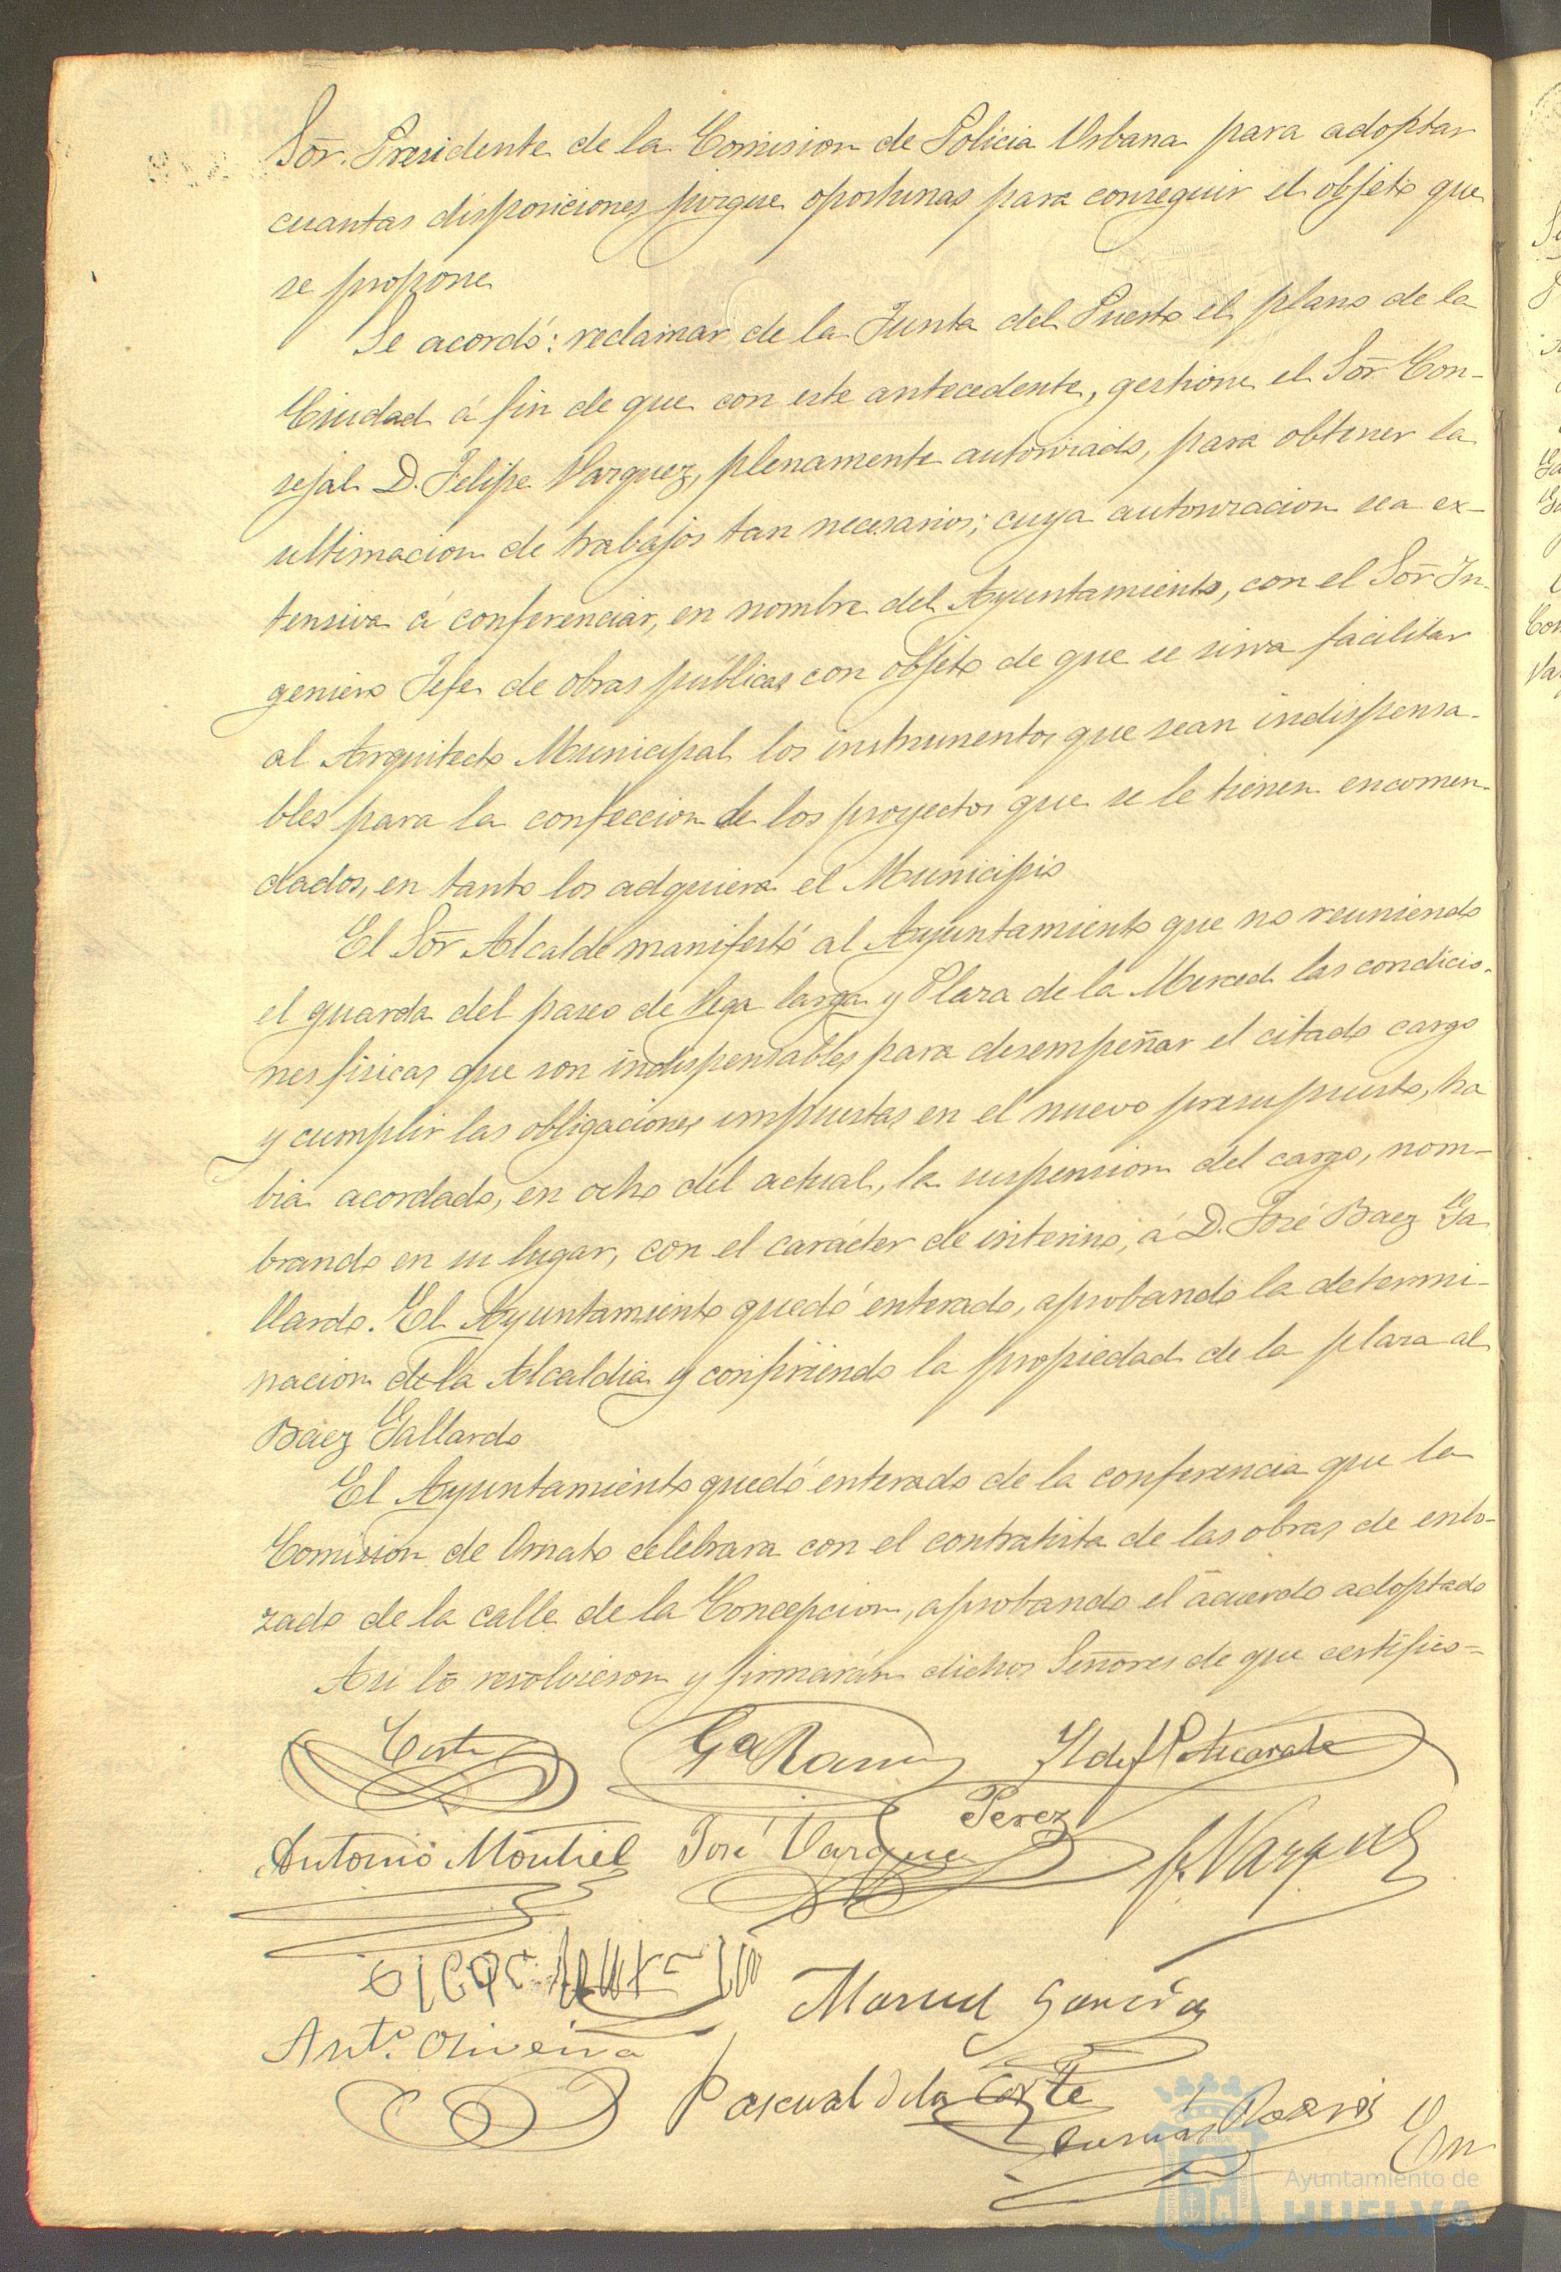 Sõr. Presidente de la Comision de Policia Urbana para adoptar
cuantas disposiciones juzgue oportunas para conseguir el objeto que
se propone
Se acordó: reclamar de la Junta del Puerto el plano de la
Ciudad á fin de que con este antecedente, gestione el Sõr Con-
sejal D. Felipe Vazquez, plenamente autorizado, para obtener la
ultimacion de trabajos tan necesarios; cuya autorizacion sea ex-
tensiva á conferenciar, en nombre del Ayuntamiento, con el Sõr In-
geniero Jefe de obras públicas con objeto de que se sirva facilitar
al Arquitecto Municipal los instrumentos que sean indispensa-
bles para la confeccion de los proyectos que se le tienen encomen-
dados, en tanto los adquiera el Municipio
El Sõr Alcalde manifestó al Ayuntamiento que no reuniendo
el guarda del paseo de Vega larga y Plaza de la Merced las condicio-
nes fisicas que son indispensables para desempeñar el citado cargo
y cumplir las obligaciones impuestas en el nuevo presupuesto, ha
bia acordado, en ocho del actual, la suspension del cargo, nom-
brando en su lugar, con el carácter de interino, á D. José Baez Ga
llardo. El Ayuntamiento quedó enterado, aprobando la determi-
nacion de la Alcaldia y confiriendo la propiedad de la plaza al
Baez Gallardo
El Ayuntamiento quedó enterado de la conferencia que la
Comision de Ornato celebrara con el contratista de las obras de enlo-
zado de la calle de la Concepcion, aprobando el acuerdo adoptado
Asi lo resolvieron y firmarán dichos Señores de que certifico=
Gª Ramos
Antonio Montiel José Vazquez Perez F. Vazquez
Manuel García
Antº. Oliveira
Pascual de la Corte
Ayuntamiento de
HUELVA